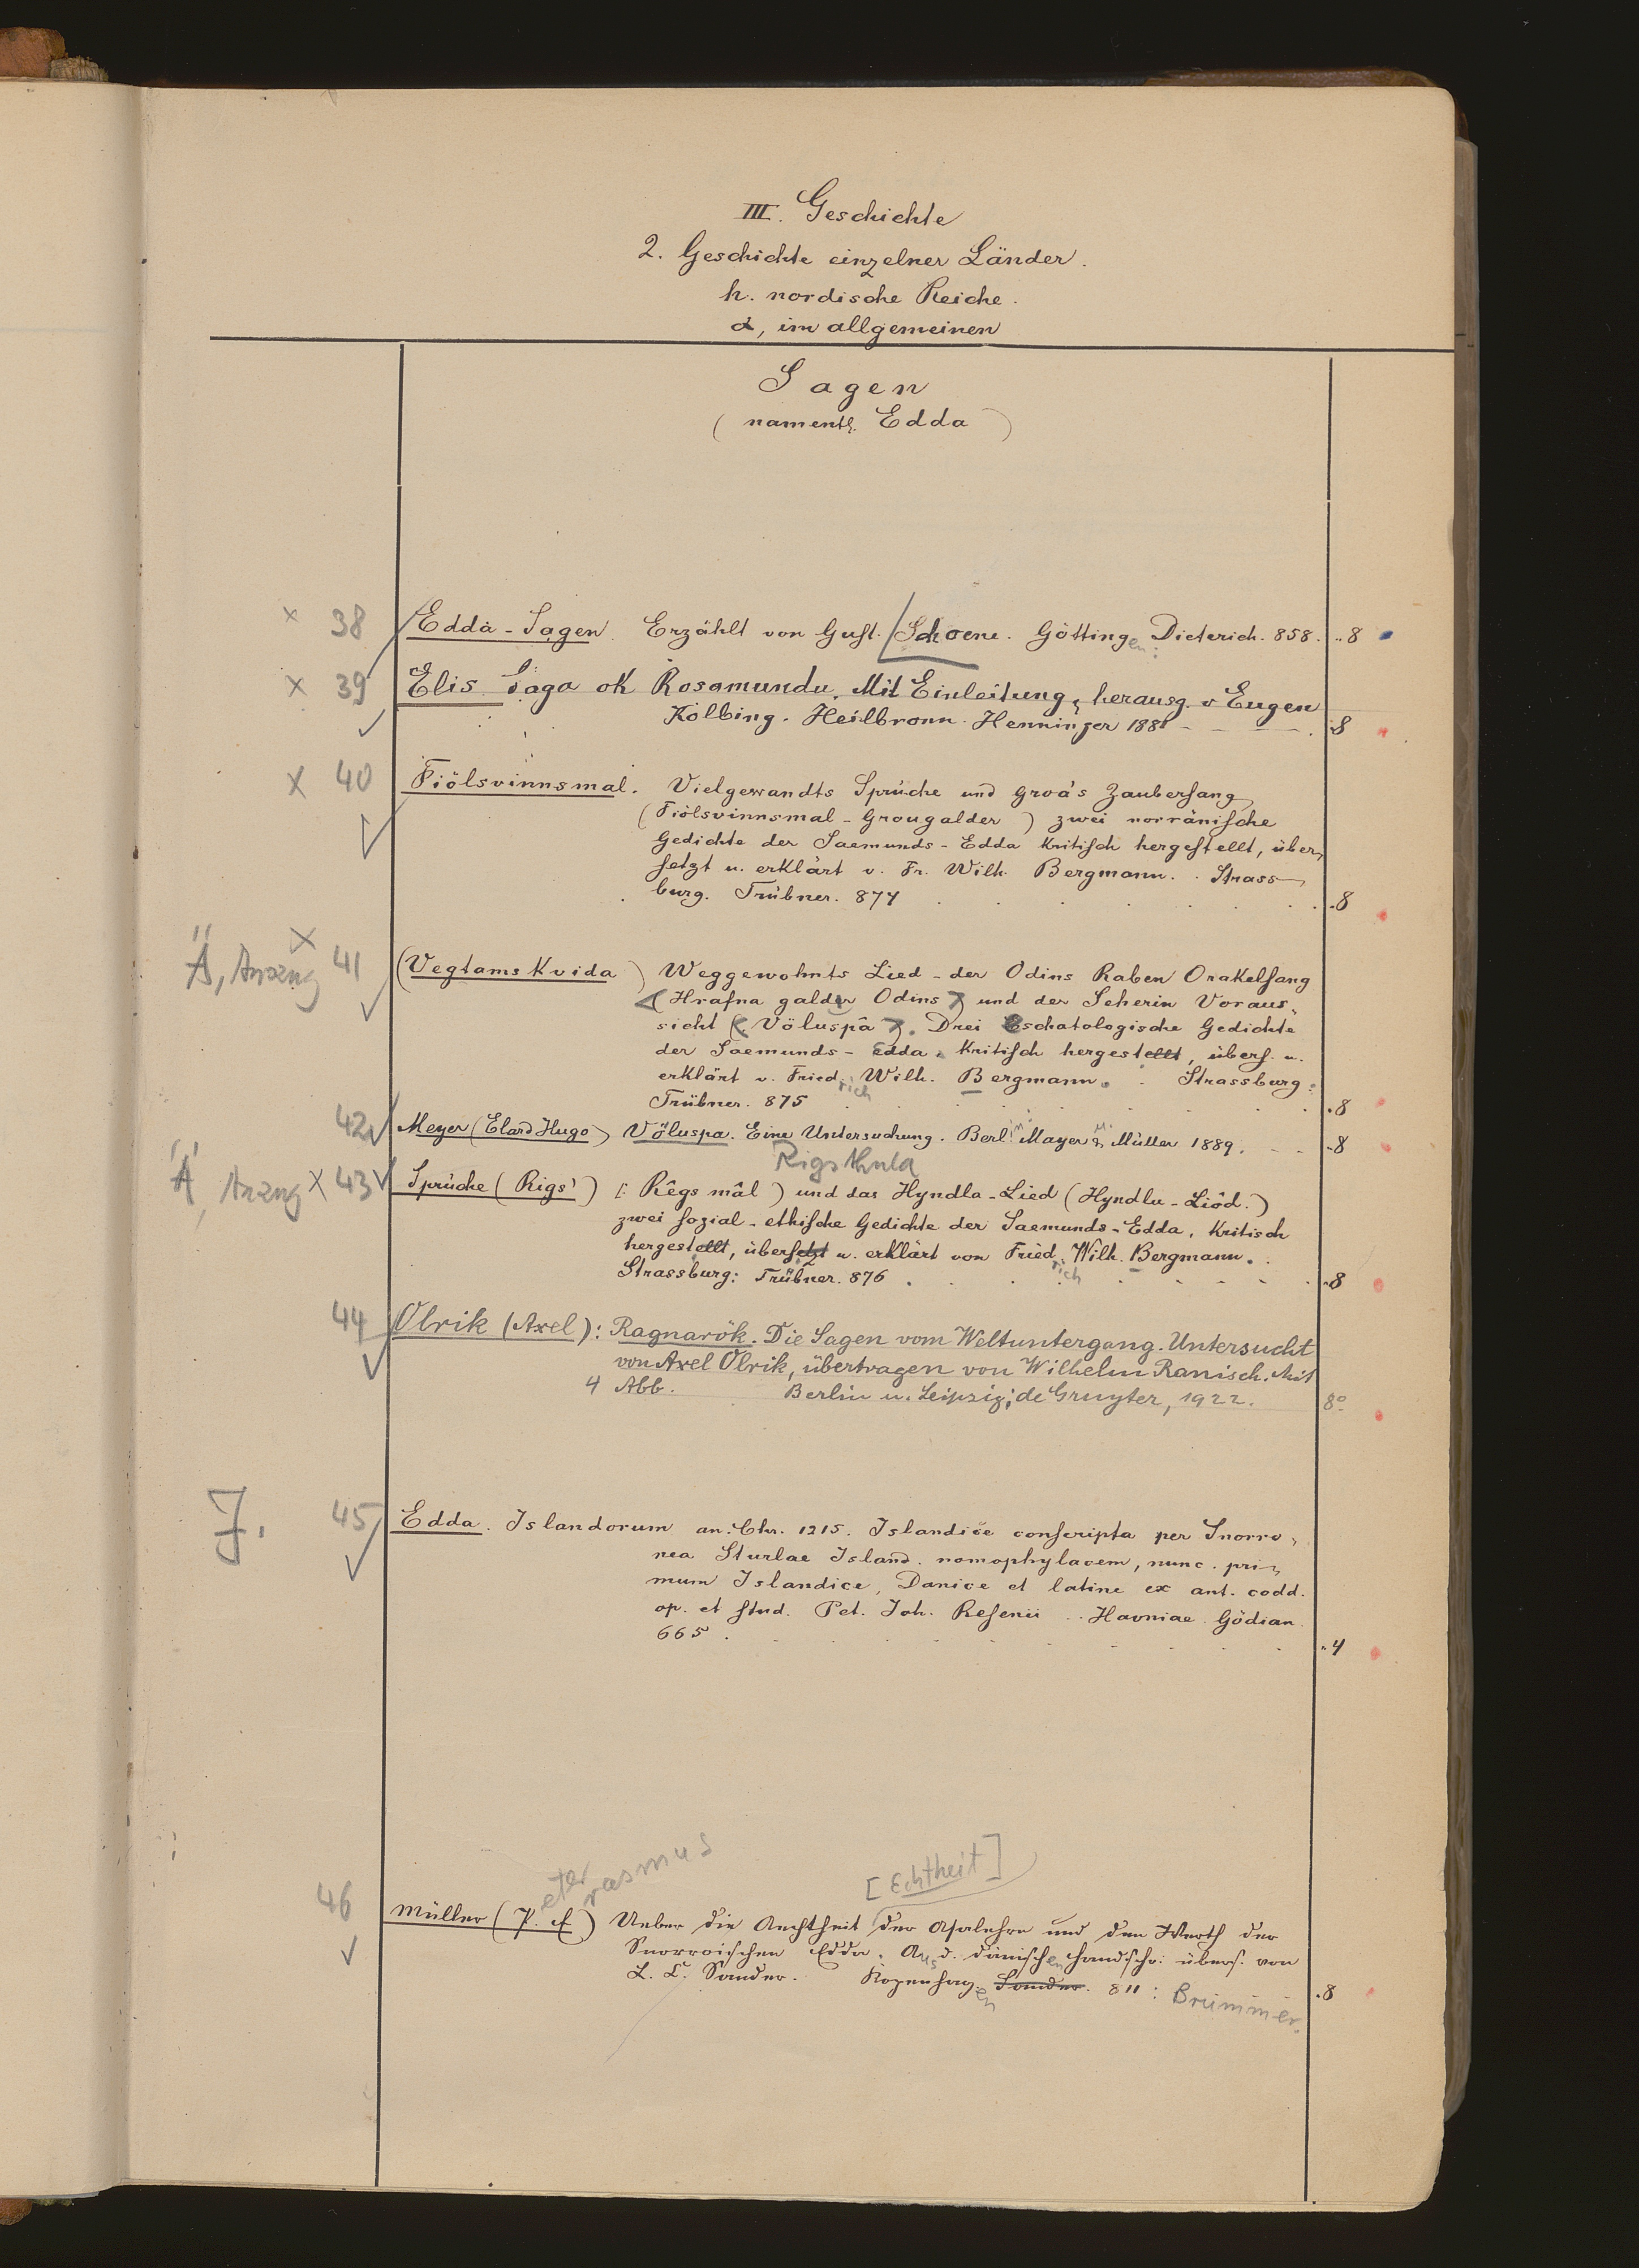 III. Geschichte
2. Geschichte einzelner Länder.
h. nordische Reiche.
α, im allgemeinen
Sagen
(namentl. Edda)
× 38 Edda-Sagen. Erzählt von Gust. Schoene. Göttingen: Dieterich. 858. 8
× 39 Elis Saga ok Rosamundu. Mit Einleitung, herausg. v Eugen
Kölbing. Heilbronn. Henninger 1881 8
× 40 Fiölsvinnsmal. Vielgewandts Sprüche und Groa's Zaubersang
(Fiölsvinnsmal-Grougalder) zwei norränische
Gedichte der Saemunds-Edda kritisch hergestellt, über,
setzt u. erklärt v. Fr. Wilh. Bergmann. Strass-
burg. Trübner. 874 8
Ä, × 41 (Vegtams Kvida) Weggewohnts Lied - der Odins Raben Orakelsang
(Hrafna galder Odins) und der Seherin Voraus,
sicht (Völuspâ). Drei Eschatologische Gedichte
der Saemunds-Edda, kritisch hergestellt, übers. u.
erklärt v. Friedrich Wilh. Bergmann. Strassburg:
Trübner. 875 8
42 Meyer (Elard Hugo) Völuspa. Eine Untersuchung. Berlin Mayer & Müller 1889. 8
Rigsthula
Ä, × 43 Sprüche (Rigs') (: Rêgs mâl) und das Hyndla-Lied (Hyndlu-Liôd.)
zwei sozial-ethische Gedichte der Saemunds-Edda, kritisch
hergestellt, übersetzt u. erklärt von Friedrich Wilh. Bergmann.
Strassburg: Trübner. 876 8
44 Olrik (Axel): Ragnarök. Die Sagen vom Weltuntergang. Untersucht
von Axel Olrik, übertragen von Wilhelm Ranisch. Mit
4 Abb. Berlin u. Leipzig: de Gruyter, 1922. 8°
J. 45 Edda. Islandorum an. Chr. 1215. Islandice conscripta per Snorro,
nea Sturlae Island. nomophylacem, nunc. pri,
mum Islandice, Danice et latine ex ant. codd.
op. et stud. Pet. Joh. Resenii Havniae Gödian
665 4
eter rasmus [Echtheit]
46 Müller (P. E) Ueber die Aechtheit der Asalehre und den Werth der
Snorroischen Edda. Aus d. dänischen Handschr. übers. von
L. C. Sander. Kopenhagen Sander. 811: Brummer.
8